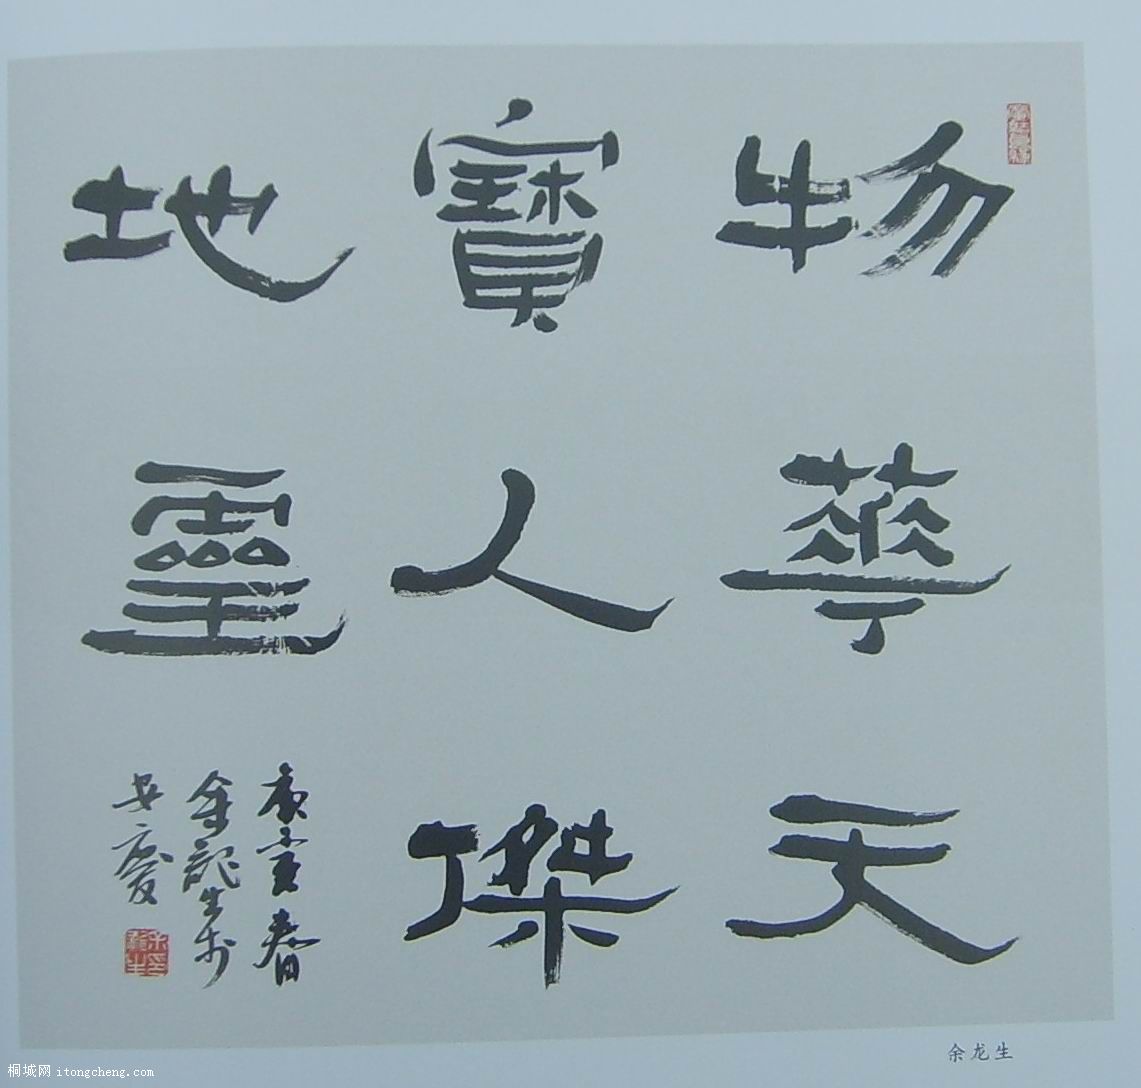 物華天
寶人傑
地靈
庚寅春
余龍生於
安慶
余龙生
桐城网 itongcheng.com